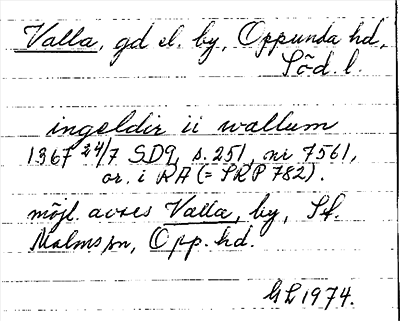 Valla, gd el. by, Oppunda hd,
Söd. l.
ingeldir ii wallum
1367 24/7 SD9, s. 251, nr 7561,
or. i RA (= SRP 782).
möjl. avses Valla, by, St.
Malms sn, Opp. hd.
GL 1974.